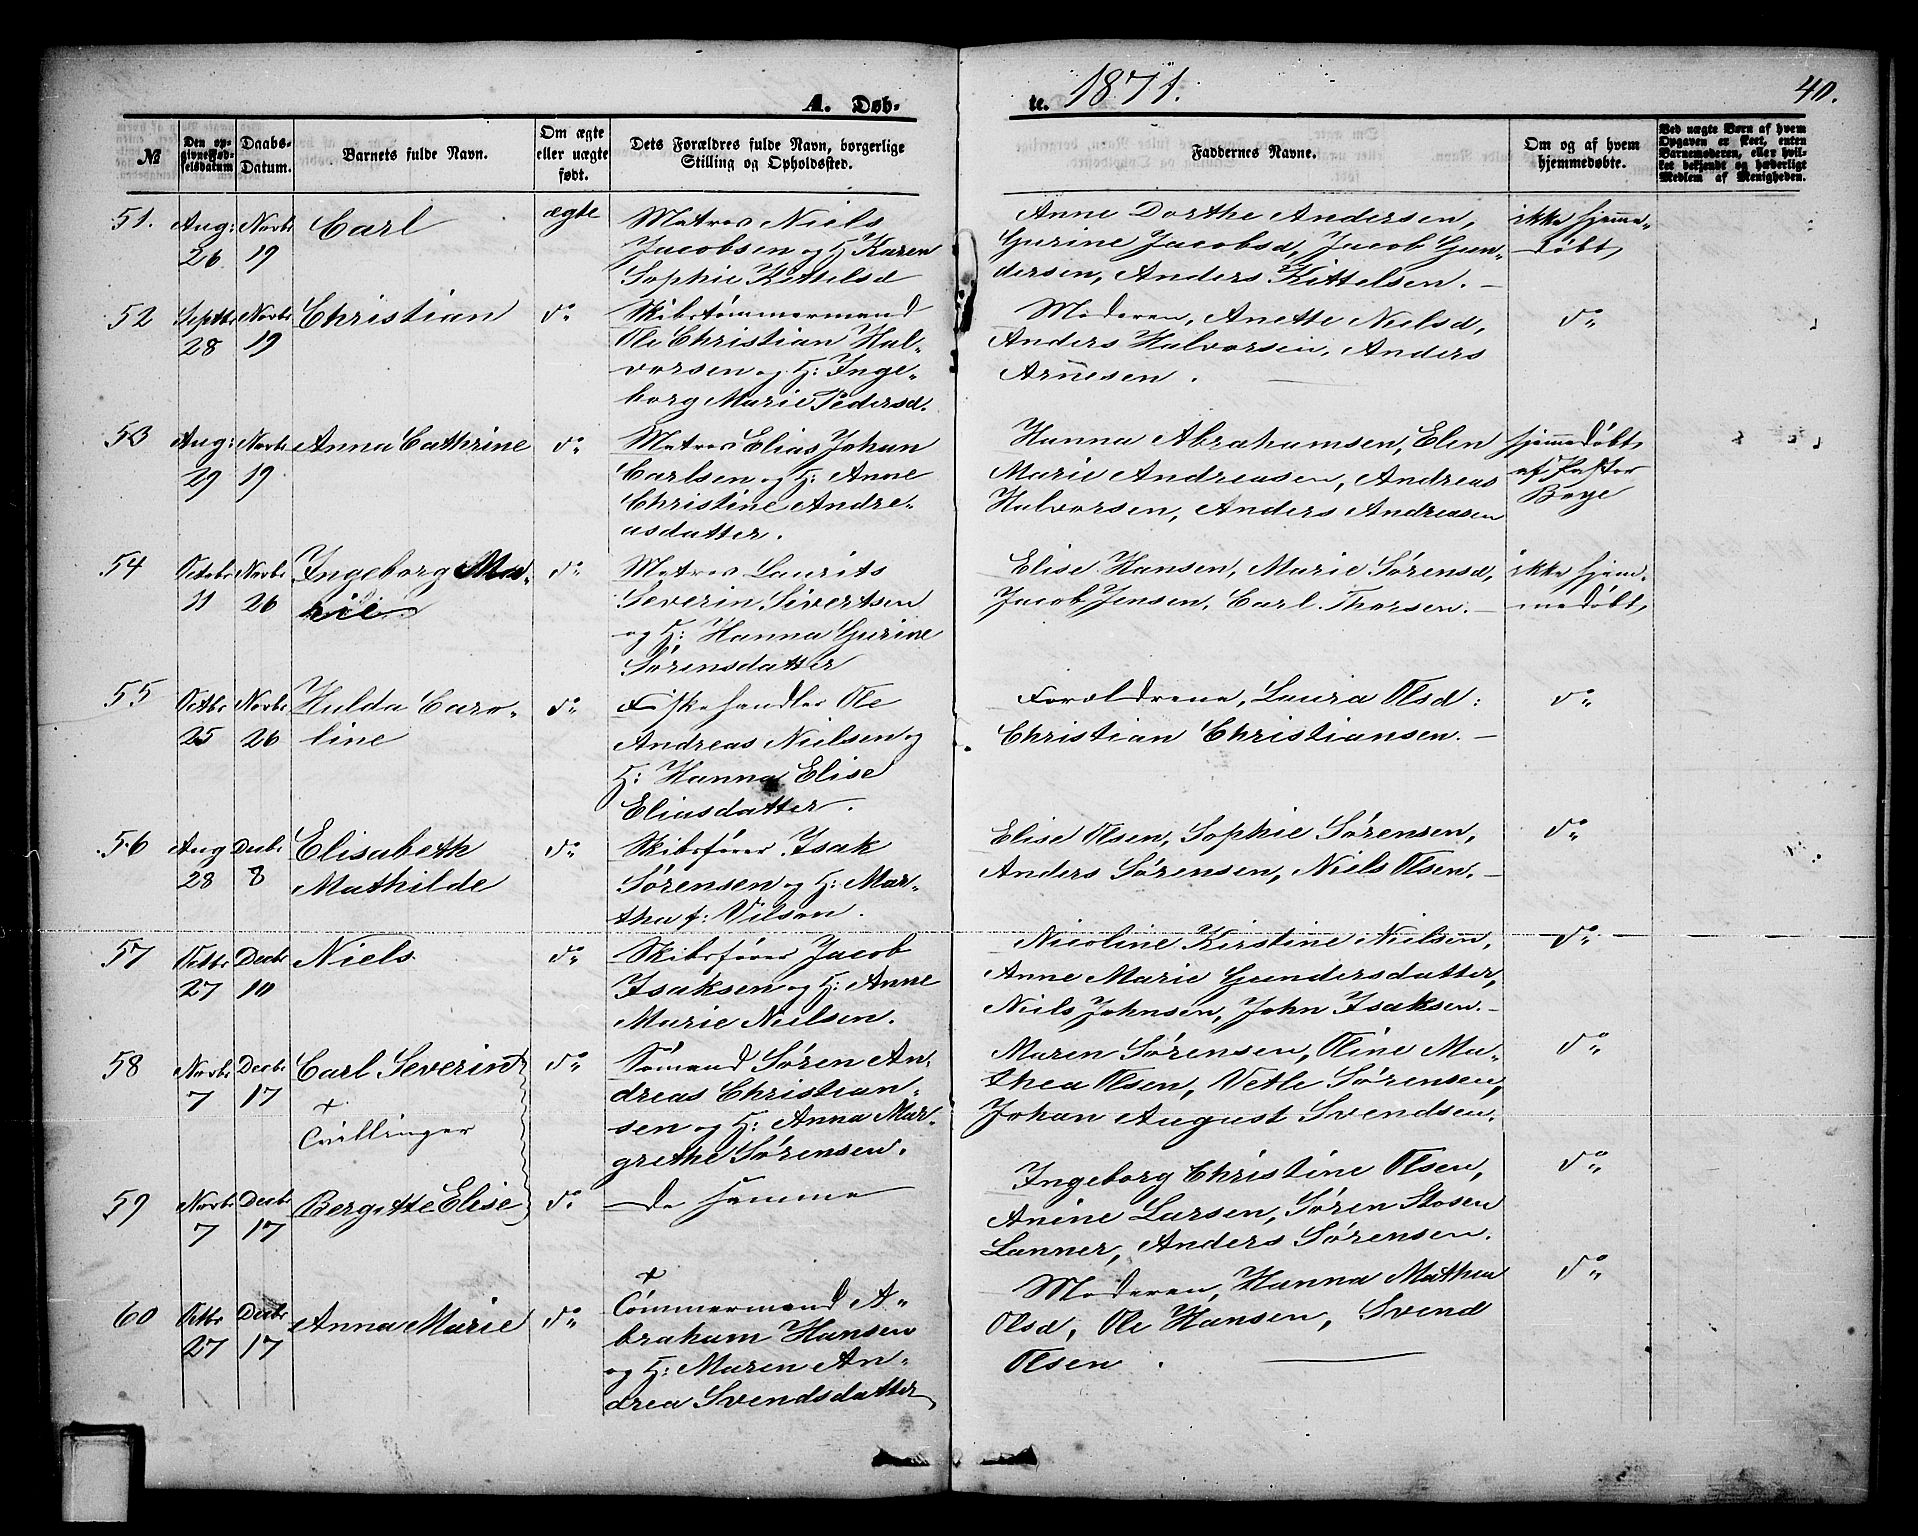 A. Døb-
te. 1871.
40.
№
Den op-
givne Fød-
selsdatum
Daabs-
Datum.
Barnets fulde Navn.
Om ægte
eller uægte
født.
Dets Forældres fulde Navn, borgerlige
Stilling og Opholdssted.
Faddernes Navne.
Om og af hvem
hjemmedøbte.
Ved uægte Børn af hvem
Opgaven er skeet, enten
Barnemoderen, eller hvil-
ket bekjendt og hæderligt
Medlem af Menigheden.
51. Aug: 26 Novbr 19 Carl ægte
Matros Niels
Jacobsen og H. Karen
Sophie Kittelsd
Anne Dorthe Andersen,
Gurine Jacobsd, Jacob Gun-
dersen, Anders Kittelsen. —
ikke hjemme-
døbt
52 Septbr 28 Novbr 19 Christian do
Skibstømmermand
Ole Christian Hal-
vorsen og H: Inge-
borg Marie Pedersd.
Moderen, Anette Nielsd,
Anders Halvorsen, Anders
Arnesen.
do
53 Aug: 29 Novbr 19 Anna Cathrine do
Matros Elias Johan
Carlsen og H: Anne
Christine Andre-
asdatter.
Hanna Abrahamsen, Elen
Marie Andreasen, Andreas
Halvorsen, Anders Andreasen
hjemmedøbt
af Pastor
Boye
54 Octobr 11 Novbr 26 Ingeborg Ma-
rie do
Matros Laurits
Severin Sivertsen
og H: Hanna Gurine
Sørensdatter
Elise Hansen, Marie Sørensd,
Jacob Jensen, Carl Thorsen. —
ikke hjem-
medøbt
55 Octbr 25 Novbr 26 Hulda Caro-
line do
Fiskehandler Ole
Andreas Nielsen og
H: Hanna Elise
Eliasdatter.
Forældrene, Laura Olsd:
Christian Christiansen. —
do
56 Aug 28 Decbr 8 Elisabeth
Mathilde do
Skibsfører Isak
Sørensen og H: Mar-
tha f: Vilson.
Elise Olsen, Sophie Sørensen,
Anders Sørensen, Niels Olsen. —
do
57 Octbr 27 Decbr 10 Niels do
Skibsfører Jacob
Isaksen og H: Anne
Marie Nielsen.
Nicoline Kirstine Nielsen,
Anne Marie Gundersdatter,
Niels Johnsen, John Isaksen. —
do
58 Novbr 7 Decbr 17 Carl Severin do
Tvillinger
Sømand Søren An-
dreas Christian-
sen og H: Anna Mar-
grethe Sørensen.
Maren Sørensen, Oline Ma-
thea Olsen, Vetle Sørensen,
Johan August Svendsen.
do
59 Novbr 7 Decbr 17 Bergitte Elise do
De samme
Ingeborg Christine Olsen,
Anine Larsen, Søren Stosen
Lanner, Anders Sørensen.
do
60 Octbr 27 Decbr 17 Anna Marie do
Tømmermand A-
braham Hansen
og H: Maren An-
drea Svendsdatter
Moderen, Hanna Mathea
Olsd, Ole Hansen, Svend
Olsen.
do